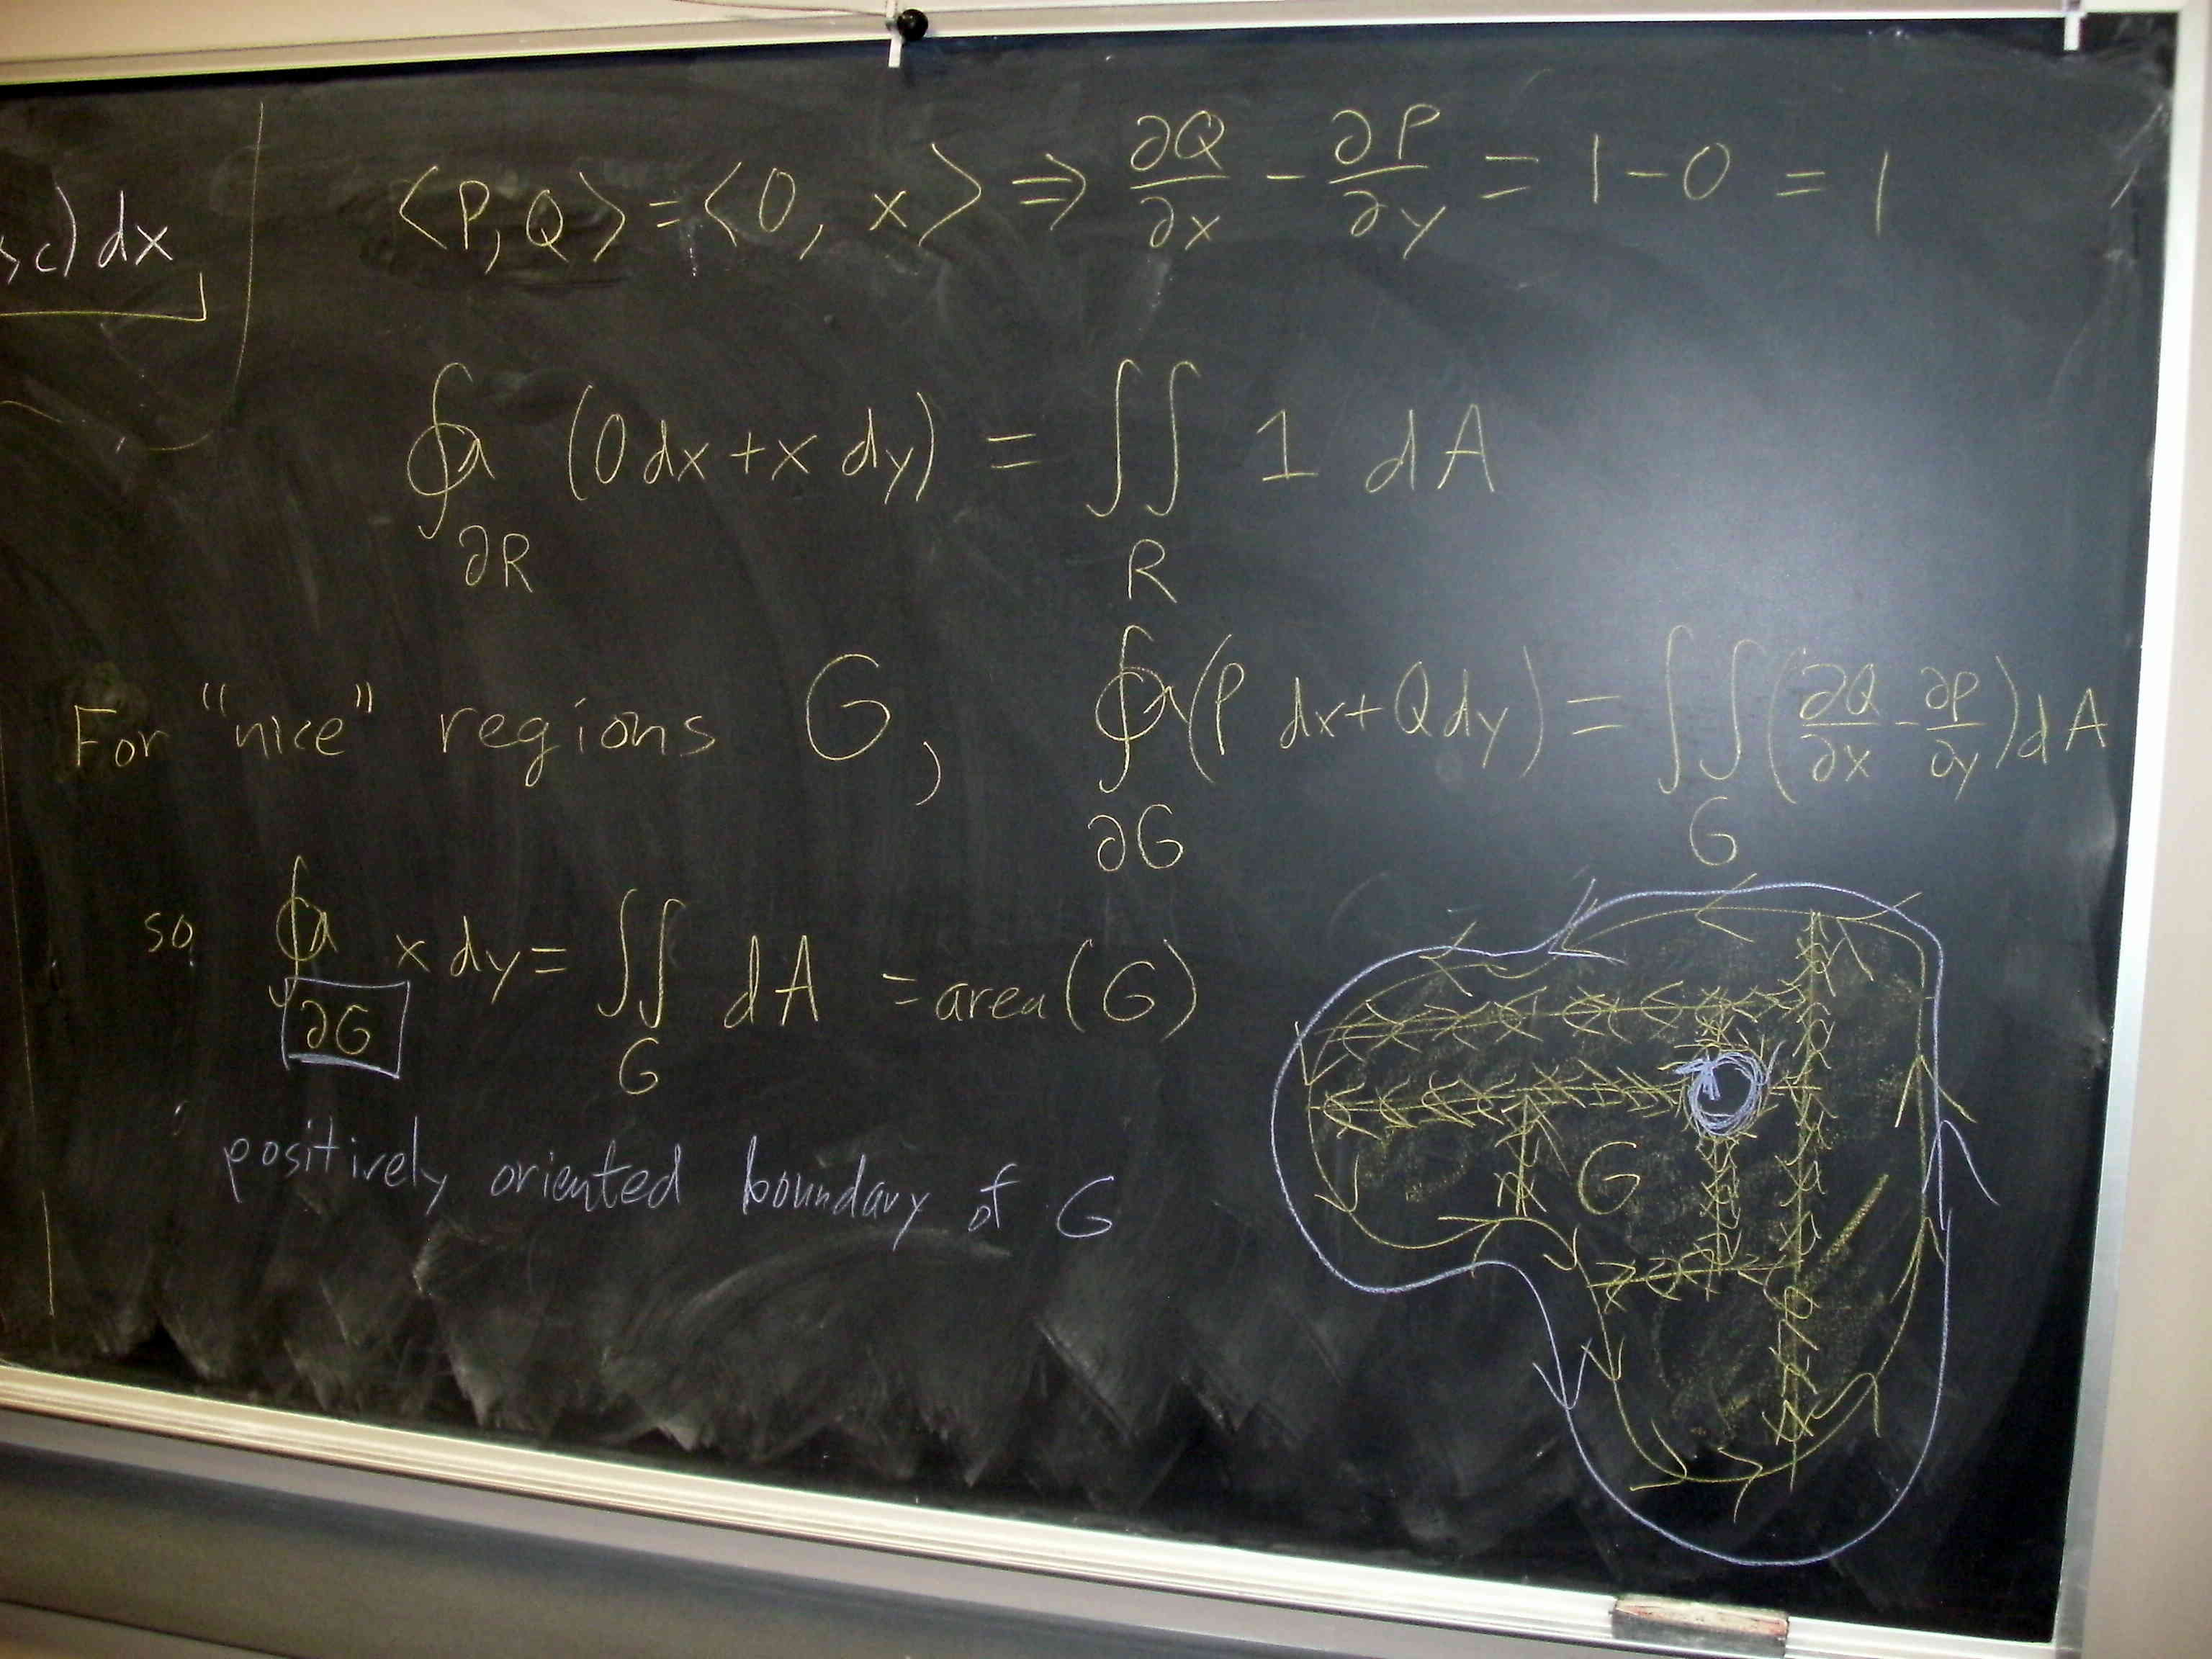 ⟨P, Q⟩ = ⟨0, x⟩ ⇒ ∂Q/∂x - ∂P/∂y = 1 - 0 = 1
c) dx
∮∂R (0 dx + x dy) = ∬R 1 dA
For "nice" regions G, ∮∂G (P dx + Q dy) = ∬G (∂Q/∂x - ∂P/∂y) dA
so ∮∂G x dy = ∬G dA = area (G)
positively oriented boundary of G
G